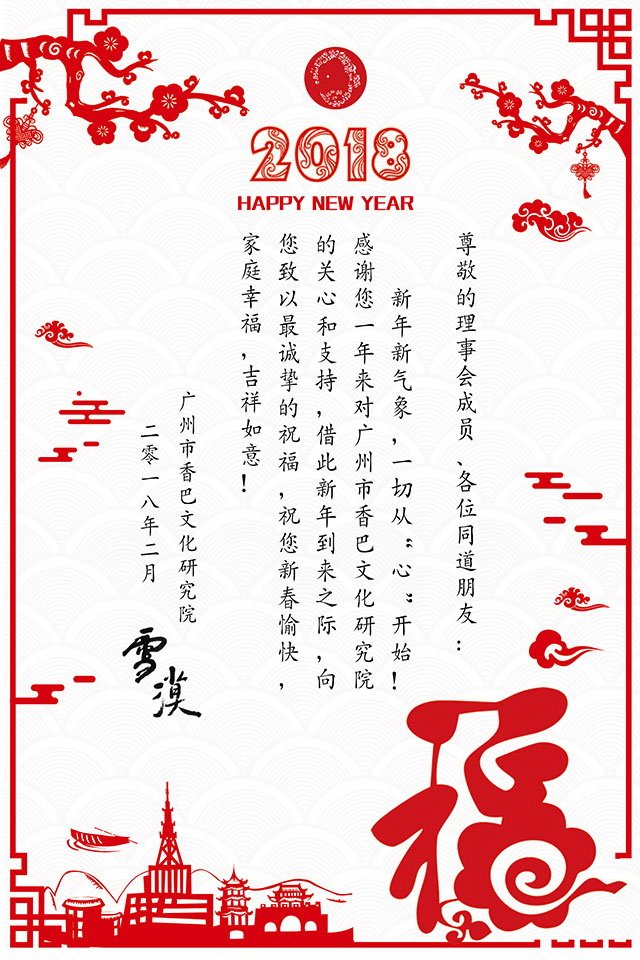 2018
HAPPY NEW YEAR
尊敬的理事会成员、各位同道朋友：
新年新气象，一切从“心”开始！
感谢您一年来对广州市香巴文化研究院
的关心和支持，借此新年到来之际，向
您致以最诚挚的祝福，祝您新春愉快，
家庭幸福，吉祥如意！
广州市香巴文化研究院
二零一八年二月
雪漠
福